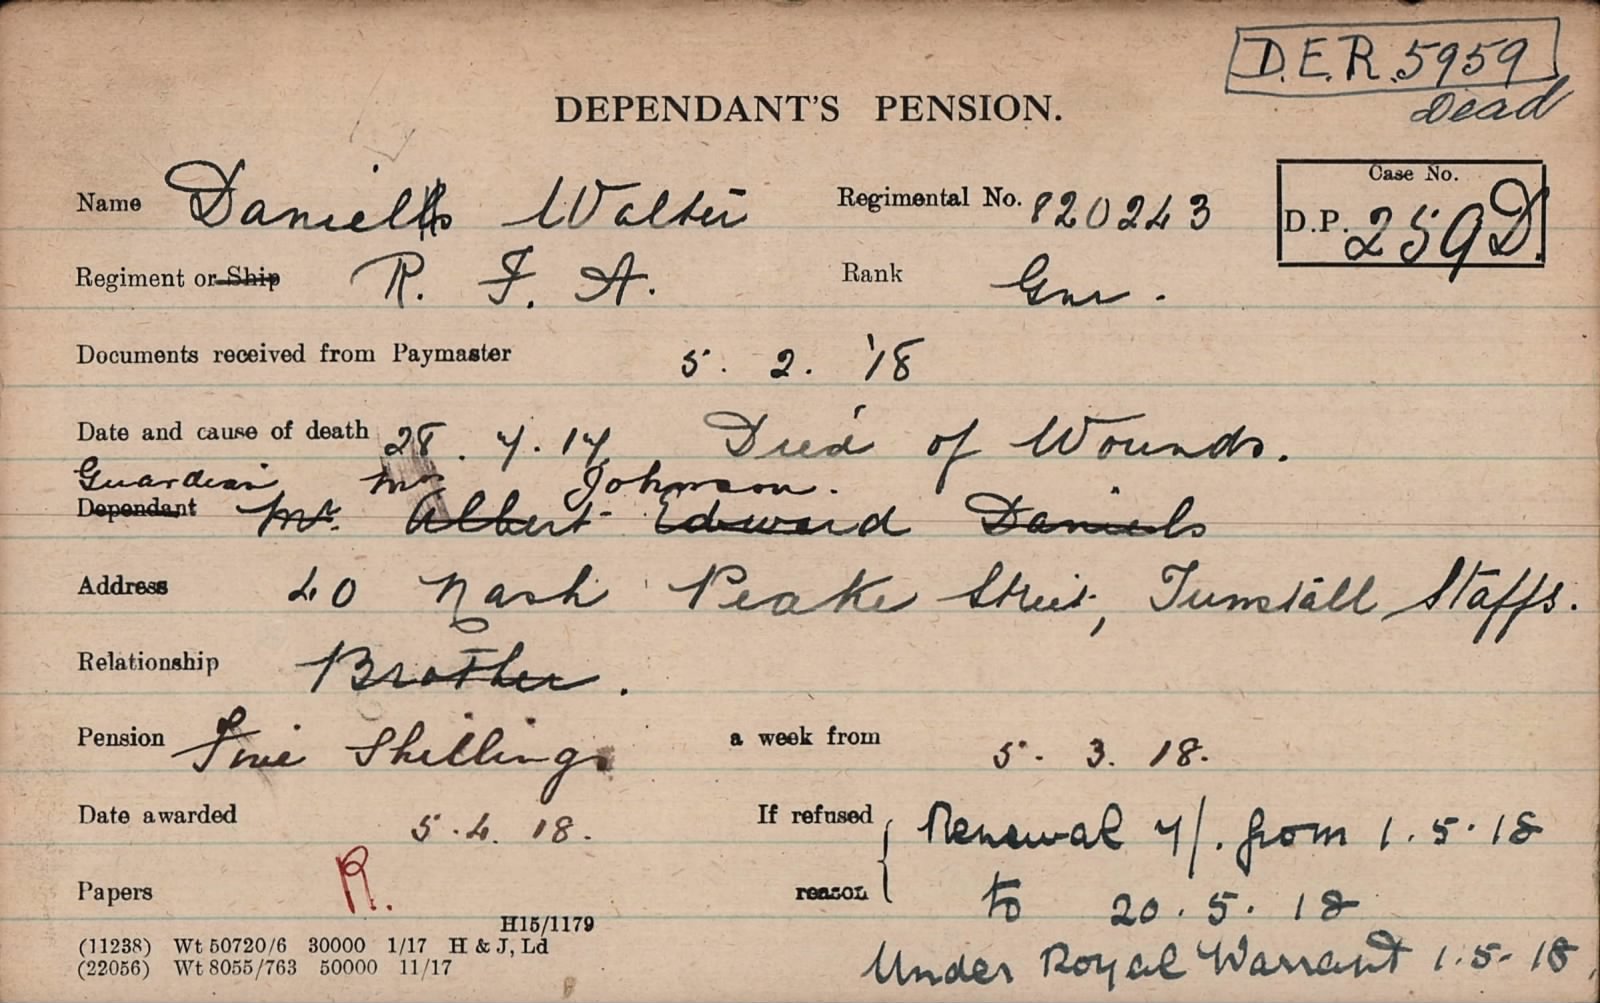 D.E.R. 5959
Dead
DEPENDANT'S PENSION.
Name Daniels Walter Regimental No. 820243 Case No. D.P. 259D.
Regiment or Ship R. F. A. Rank Gnr.
Documents received from Paymaster 5. 2. '18
Date and cause of death 28. 7. 17 Died of Wounds.
Guardian Mrs Johnson.
Dependant Mr. Albert Edward Daniels
Address 40 Nash Peake Street, Tunstall Staffs.
Relationship Brother.
Pension Five Shillings a week from 5. 3. 18.
Date awarded 5. 4. 18. If refused reason Renewal 7/. from 1. 5. 18
Papers R. to 20. 5. 18
H15/1179
(11238) Wt 50720/6 30000 1/17 H & J, Ld
Under Royal Warrant 1. 5. 18.
(22056) Wt 8055/763 50000 11/17